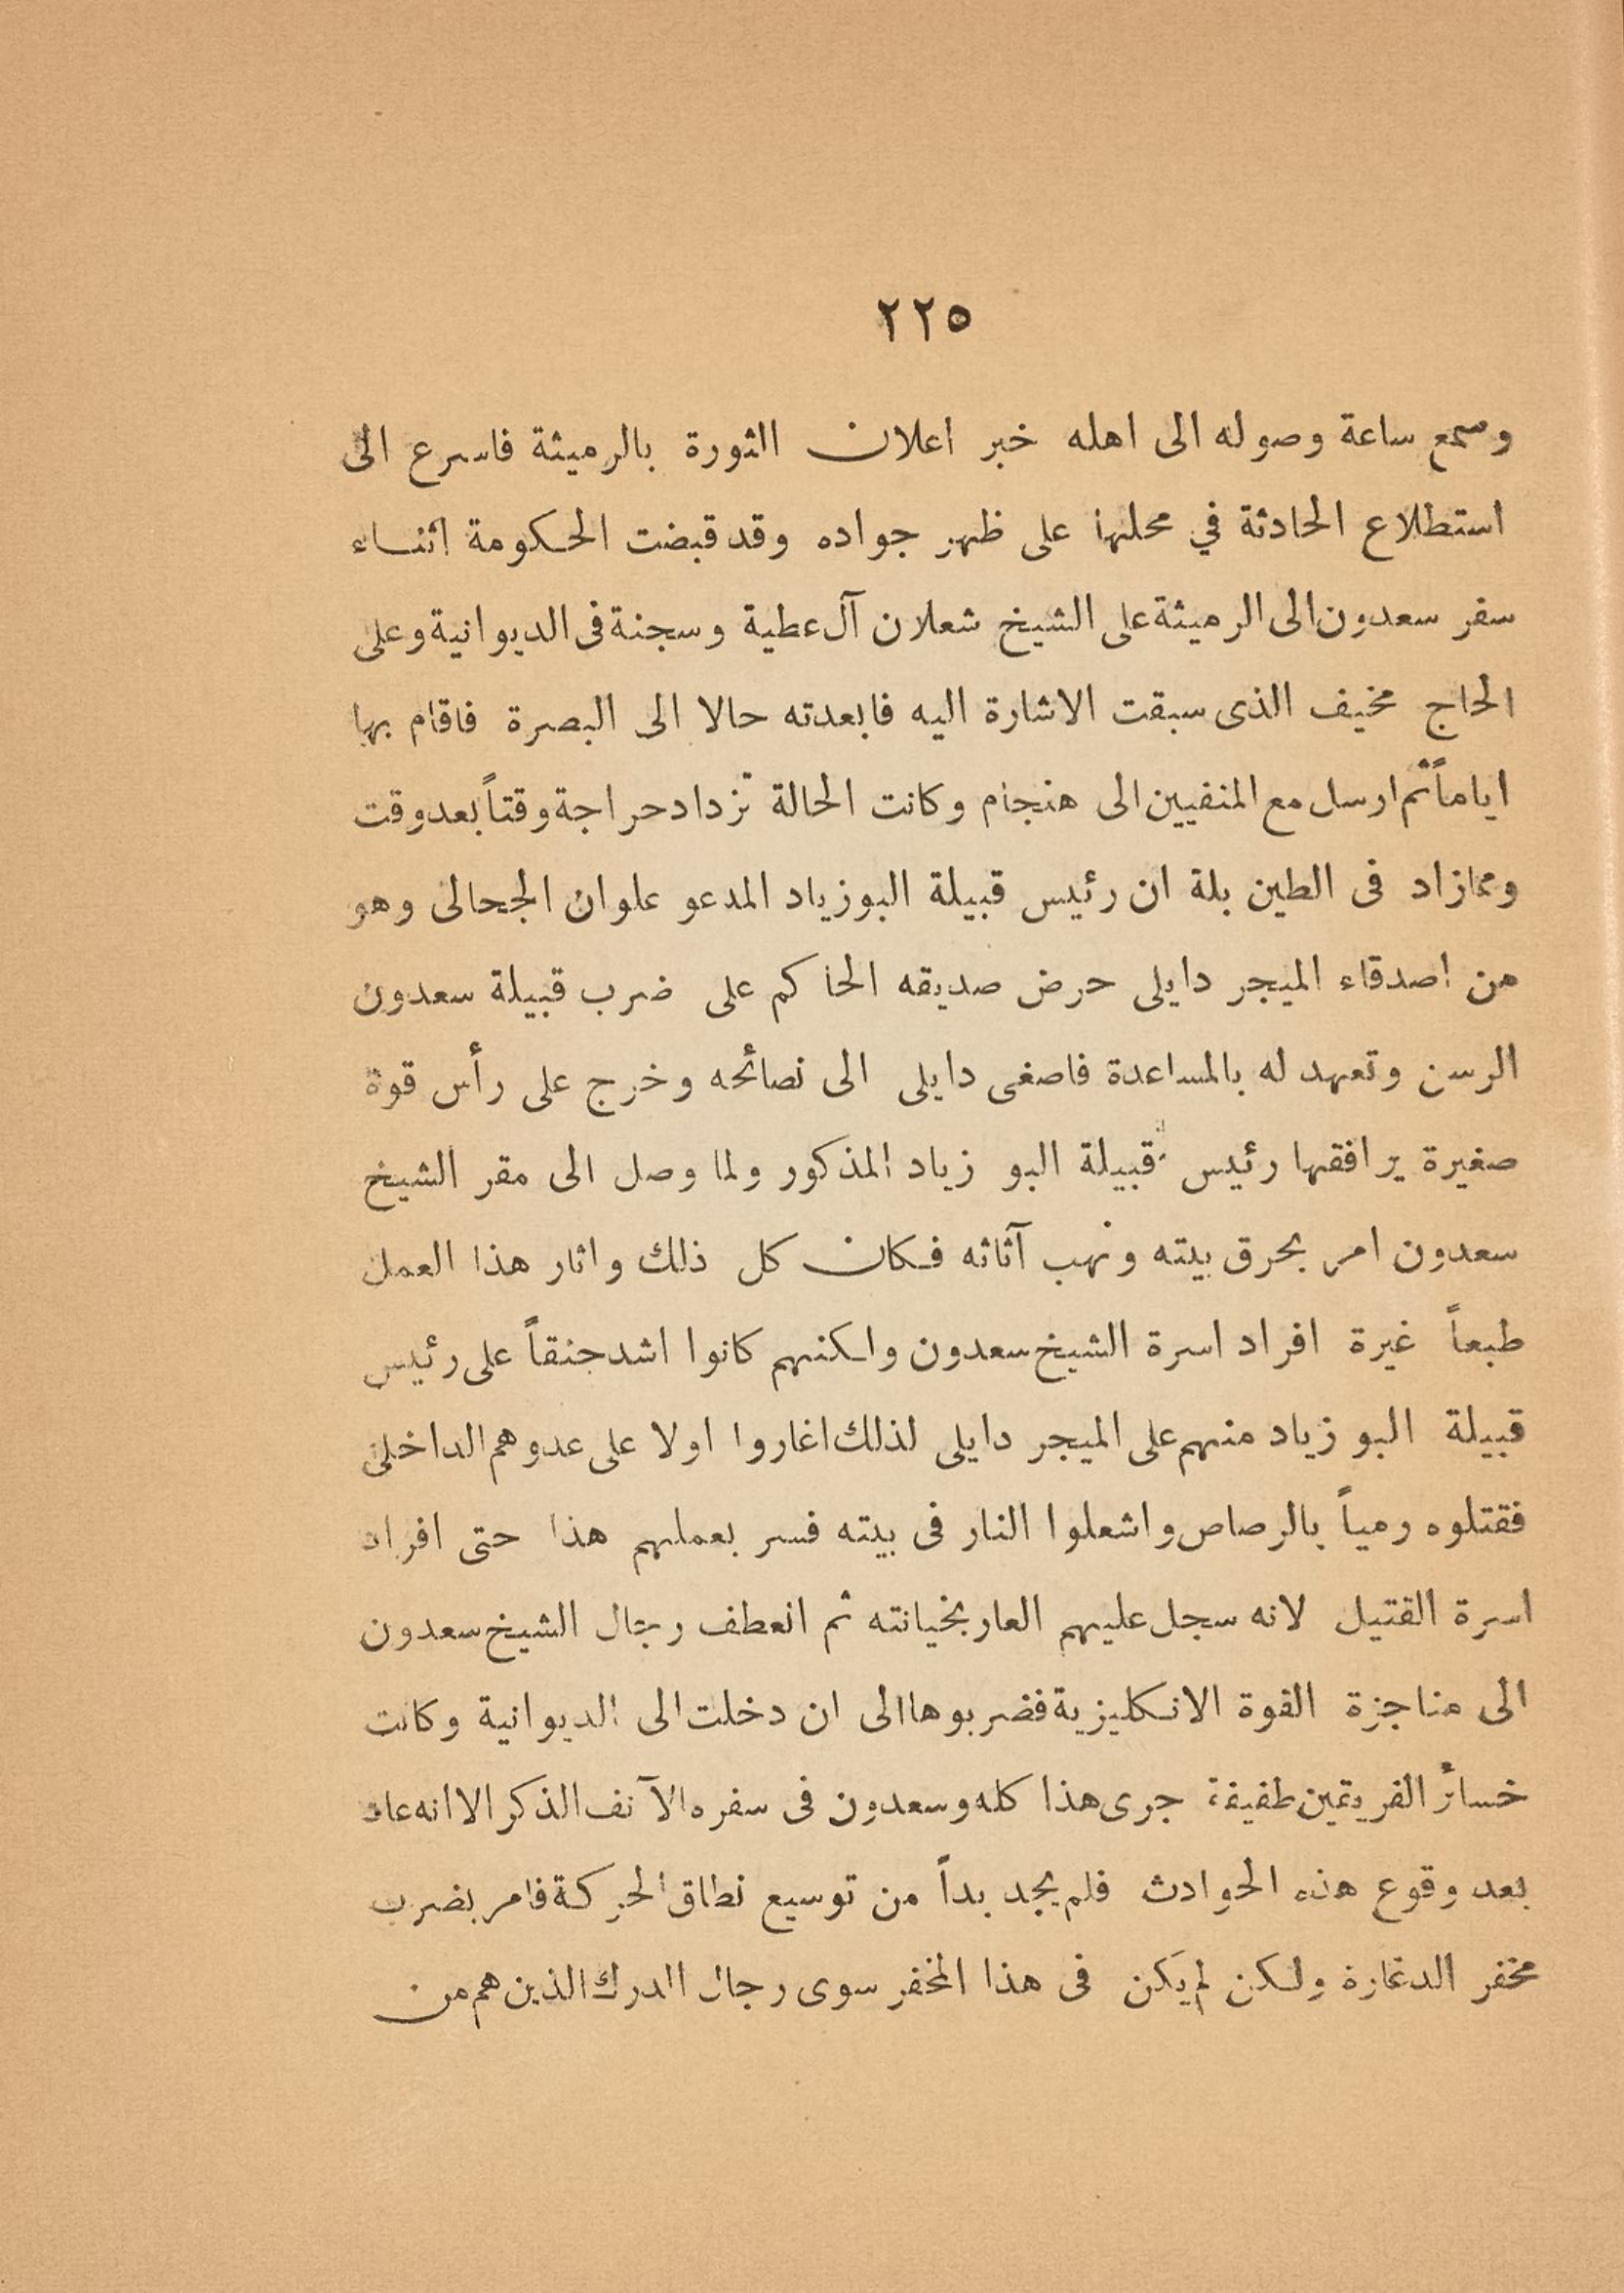 ٢٢٥
وسمع ساعة وصوله الى اهله خبر اعلان الثورة بالرميثة فاسرع الى
استطلاع الحادثة في محلها على ظهر جواده وقد قبضت الحكومة اثناء
سفر سعدون الى الرميثة على الشيخ شعلان آل عطية وسجنة فى الديوانية وعلى
الحاج مخيف الذى سبقت الاشارة اليه فابعدته حالا الى البصرة فاقام بها
اياماً ثم ارسل مع المنفيين الى هنجام وكانت الحالة تزداد حراجة وقتاً بعد وقت
ومما زاد فى الطين بلة ان رئيس قبيلة البوزياد المدعو علوان الجحالى وهو
من اصدقاء الميجر دايلى حرض صديقه الحاكم على ضرب قبيلة سعدون
الرسن وتعهد له بالمساعدة فاصغى دايلى الى نصائحه وخرج على رأس قوة
صغيرة يرافقها رئيس قبيلة البو زياد المذكور ولما وصل الى مقر الشيخ
سعدون امر بحرق بيته ونهب آثاثه فكان كل ذلك واثار هذا العمل
طبعاً غيرة افراد اسرة الشيخ سعدون ولكنهم كانوا اشد حنقاً على رئيس
قبيلة البو زياد منهم على الميجر دايلى لذلك اغاروا اولا على عدوهم الداخلى
فقتلوه رمياً بالرصاص واشعلوا النار فى بيته فسر بعملهم هذا حتى افراد
اسرة القتيل لانه سجل عليهم العار بخيانته ثم انعطف رجال الشيخ سعدون
الى مناجزة القوة الانكليزية فضربوها الى ان دخلت الى الديوانية وكانت
خسائر الفريقين طفيفة جرى هذا كله وسعدون فى سفره الآنف الذكر الا انه عاد
بعد وقوع هذه الحوادث فلم يجد بداً من توسيع نطاق الحركة فامر بضرب
مخفر الدغارة ولكن لم يكن فى هذا المخفر سوى رجال الدرك الذين هم من